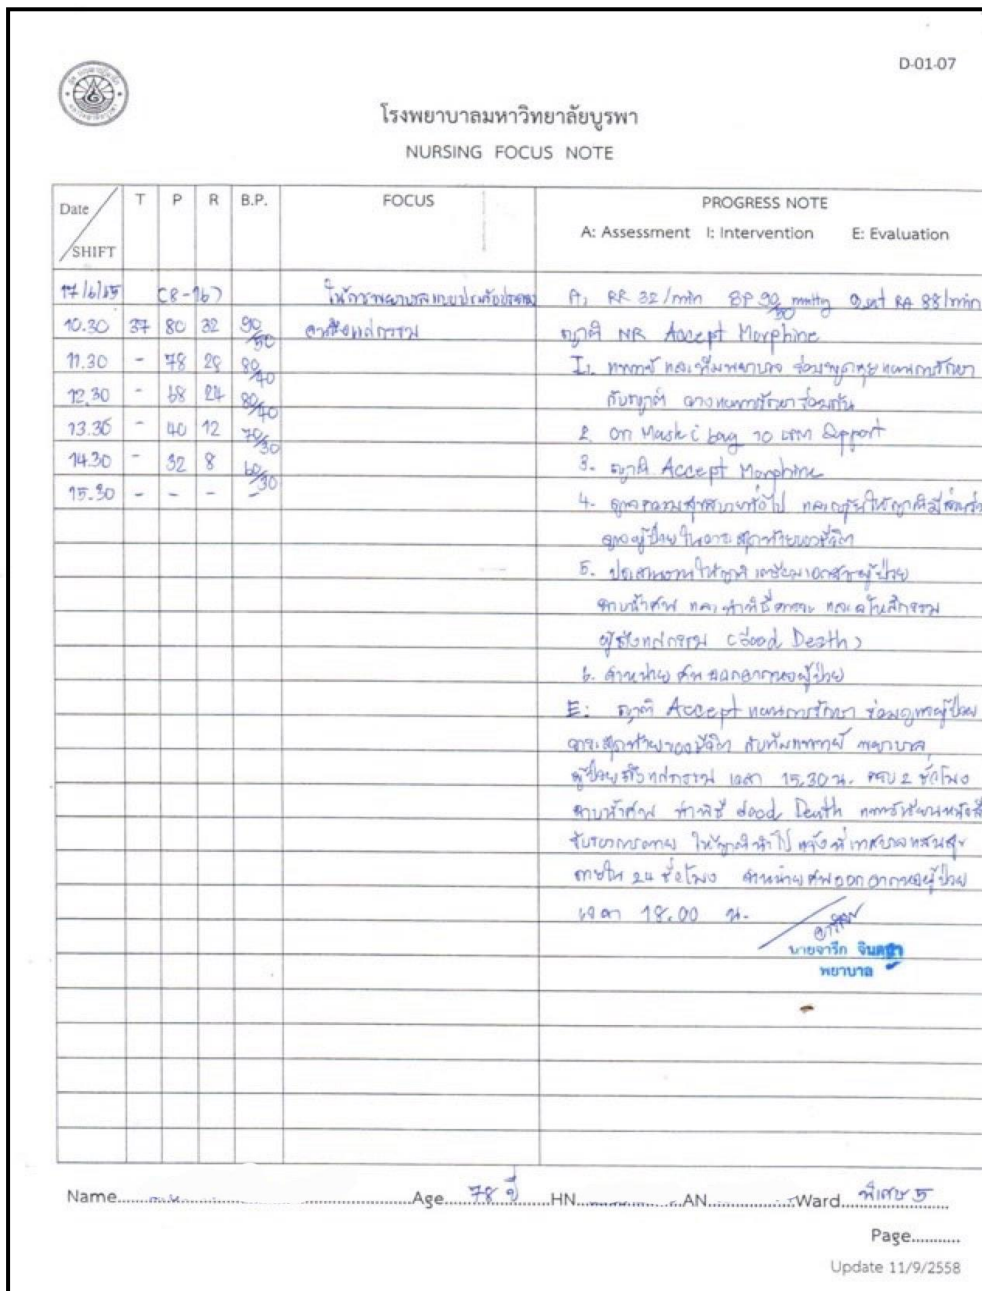 D-01-07
โรงพยาบาลมหาวิทยาลัยบูรพา
NURSING FOCUS NOTE
Date/SHIFT T P R B.P. FOCUS PROGRESS NOTE
A: Assessment I: Intervention E: Evaluation
17/6/65 (8-16) ให้การพยาบาลแบบประคับประคอง A, RR 32/min BP 90/50 mmHg RA 88
10.30 37 80 32 90/50 จนถึงแก่กรรม ญาติ NR Accept Morphine
11.30 - 78 28 80/40 I1. แพทย์ และทีมพยาบาล ร่วมพูดคุยแผนการรักษา
12.30 - 68 24 80/40 กับญาติ วางแผนการรักษาร่วมกัน
13.30 - 40 12 70/30 2. on Mask c bag 10 LPM Support
14.30 - 32 8 60/30 3. ญาติ Accept Morphine
15.30 - - - - 4. ดูแลความสุขสบายทั่วไป และให้ญาติมีส่วนร่วม
ดูแลผู้ป่วยในวาระสุดท้ายของชีวิต
5. ประสานงานให้ญาติ เตรียมเอกสารผู้ป่วย
อาบน้ำศพ และทำพิธี และอโหสิกรรม
ผู้ถึงแก่กรรม (Good Death)
6. จำหน่ายศพออกจากหอผู้ป่วย
E: ญาติ Accept แผนการรักษา ร่วมดูแลผู้ป่วย
วาระสุดท้ายของชีวิต กับทีมแพทย์ พยาบาล
ผู้ป่วยถึงแก่กรรม เวลา 15.30 น. ครบ 2 ชั่วโมง
อาบน้ำศพ ทำพิธี Good Death แพทย์เขียนหนังสือ
รับรองการตาย ให้ญาตินำไปแจ้งที่เทศบาลแสนสุข
ภายใน 24 ชั่วโมง จำหน่ายศพออกจากหอผู้ป่วย
เวลา 18.00 น.
นายจารึก
พยาบาล
Name Age 78 ปี HN AN Ward พิเศษ 5
Page
Update 11/9/2558